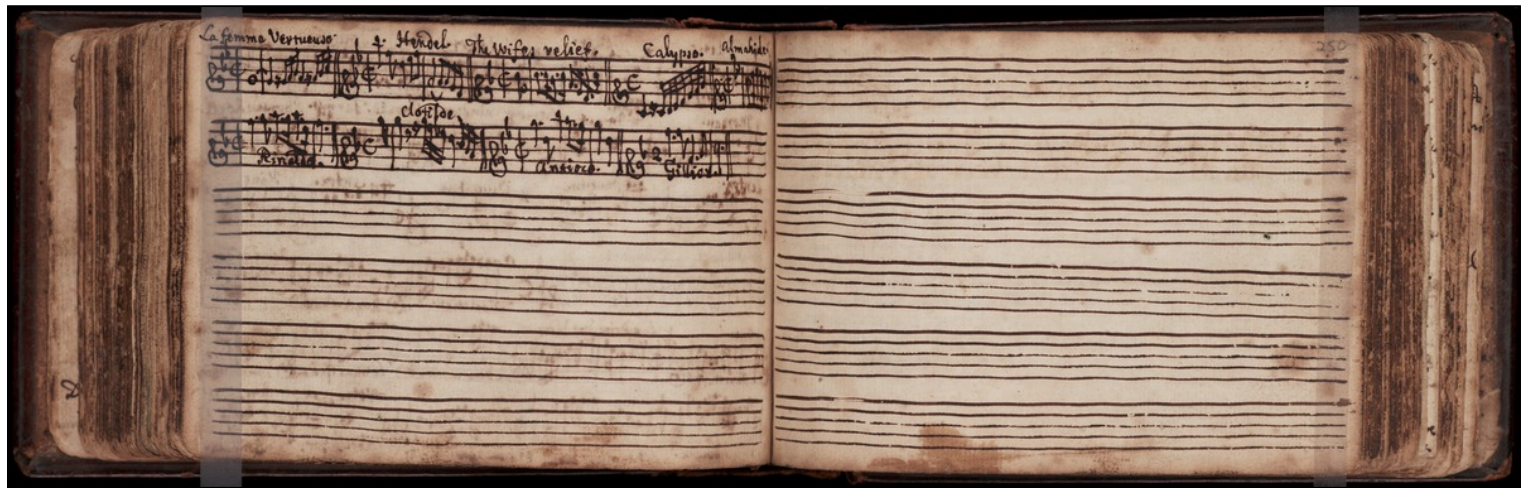 La femme Vertueuse. Hendel. The Wifes relief. Calypso. Almahide.
Clotilde
Rinaldo. Antioco. Gillier.
250